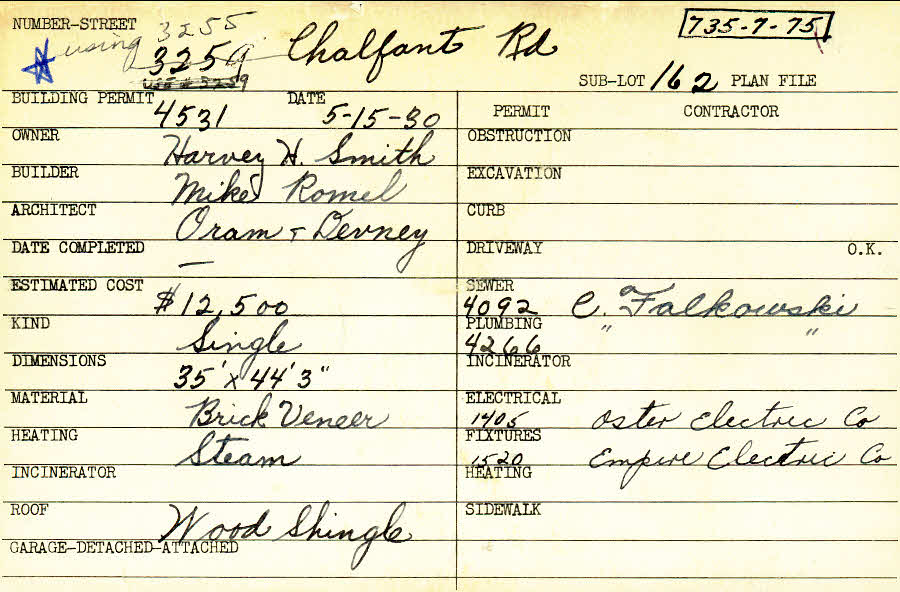 NUMBER-STREET using 3255 3259 Chalfant Rd 735-7-75
USE # 3259
SUB-LOT 162 PLAN FILE
BUILDING PERMIT 4531 DATE 5-15-30
OWNER Harvey H. Smith
BUILDER Mike Romel
ARCHITECT Oram & Devney
DATE COMPLETED —
ESTIMATED COST $12,500
KIND Single
DIMENSIONS 35' x 44' 3"
MATERIAL Brick Veneer
HEATING Steam
INCINERATOR
ROOF Wood Shingle
GARAGE-DETACHED-ATTACHED
PERMIT CONTRACTOR
OBSTRUCTION
EXCAVATION
CURB
DRIVEWAY O.K.
SEWER 4092 C. Falkowski
PLUMBING 4266 " "
INCINERATOR
ELECTRICAL 1405 Oster Electric Co
FIXTURES 1520 Empire Electric Co
HEATING
SIDEWALK